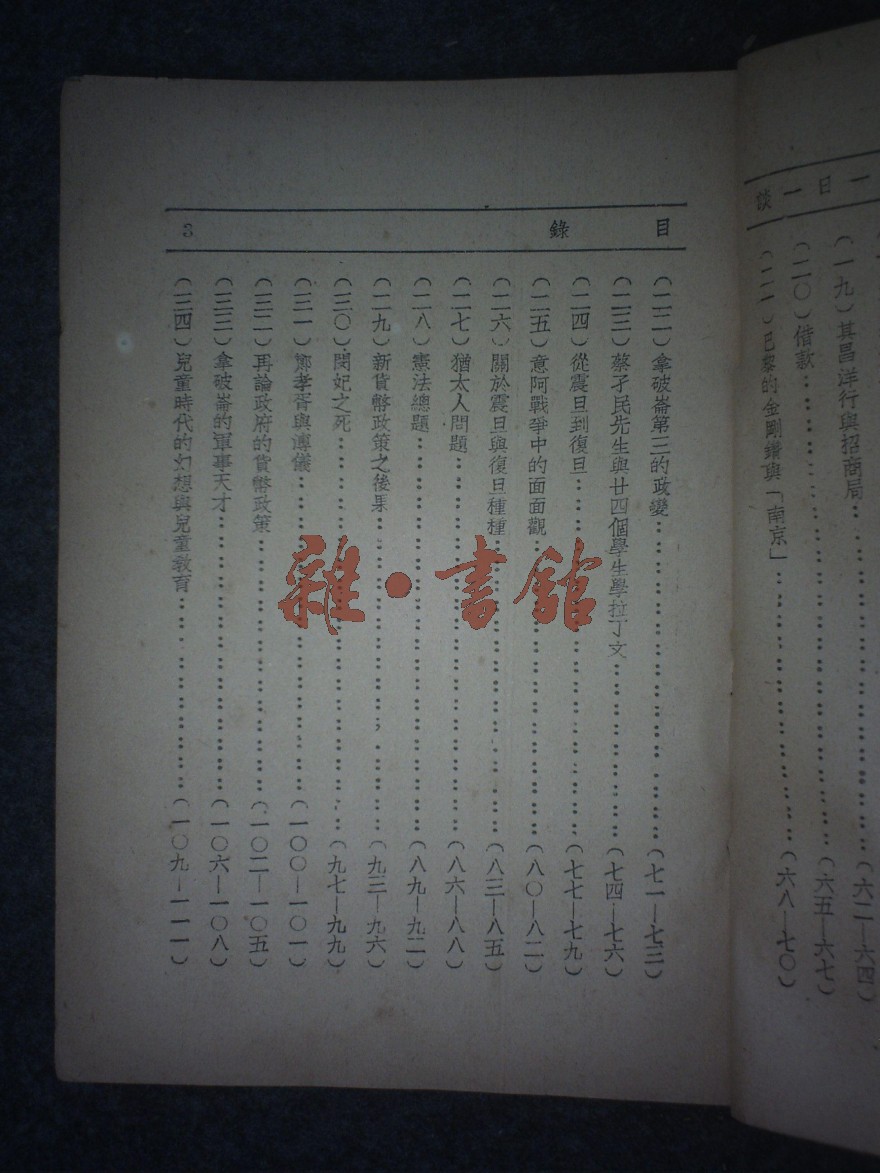 談一日一
(一九)其昌洋行與招商局……(六二—六四)
(二〇)借款……(六五—六七)
(二一)巴黎的金剛鑽與「南京」……(六八—七〇)
目錄 3
(二二)拿破崙第三的政變……(七一—七三)
(二三)蔡孑民先生與廿四個學生學拉丁文……(七四—七六)
(二四)從震旦到復旦……(七七—七九)
(二五)意阿戰爭中的面面觀……(八〇—八二)
(二六)關於震旦與復旦種種……(八三—八五)
(二七)猶太人問題……(八六—八八)
(二八)憲法總題……(八九—九二)
(二九)新貨幣政策之後果……(九三—九六)
(三〇)閔妃之死……(九七—九九)
(三一)鄭孝胥與溥儀……(一〇〇—一〇一)
(三二)再論政府的貨幣政策……(一〇二—一〇五)
(三三)拿破崙的軍事天才……(一〇六—一〇八)
(三四)兒童時代的幻想與兒童教育……(一〇九—一一一)
雜·書館